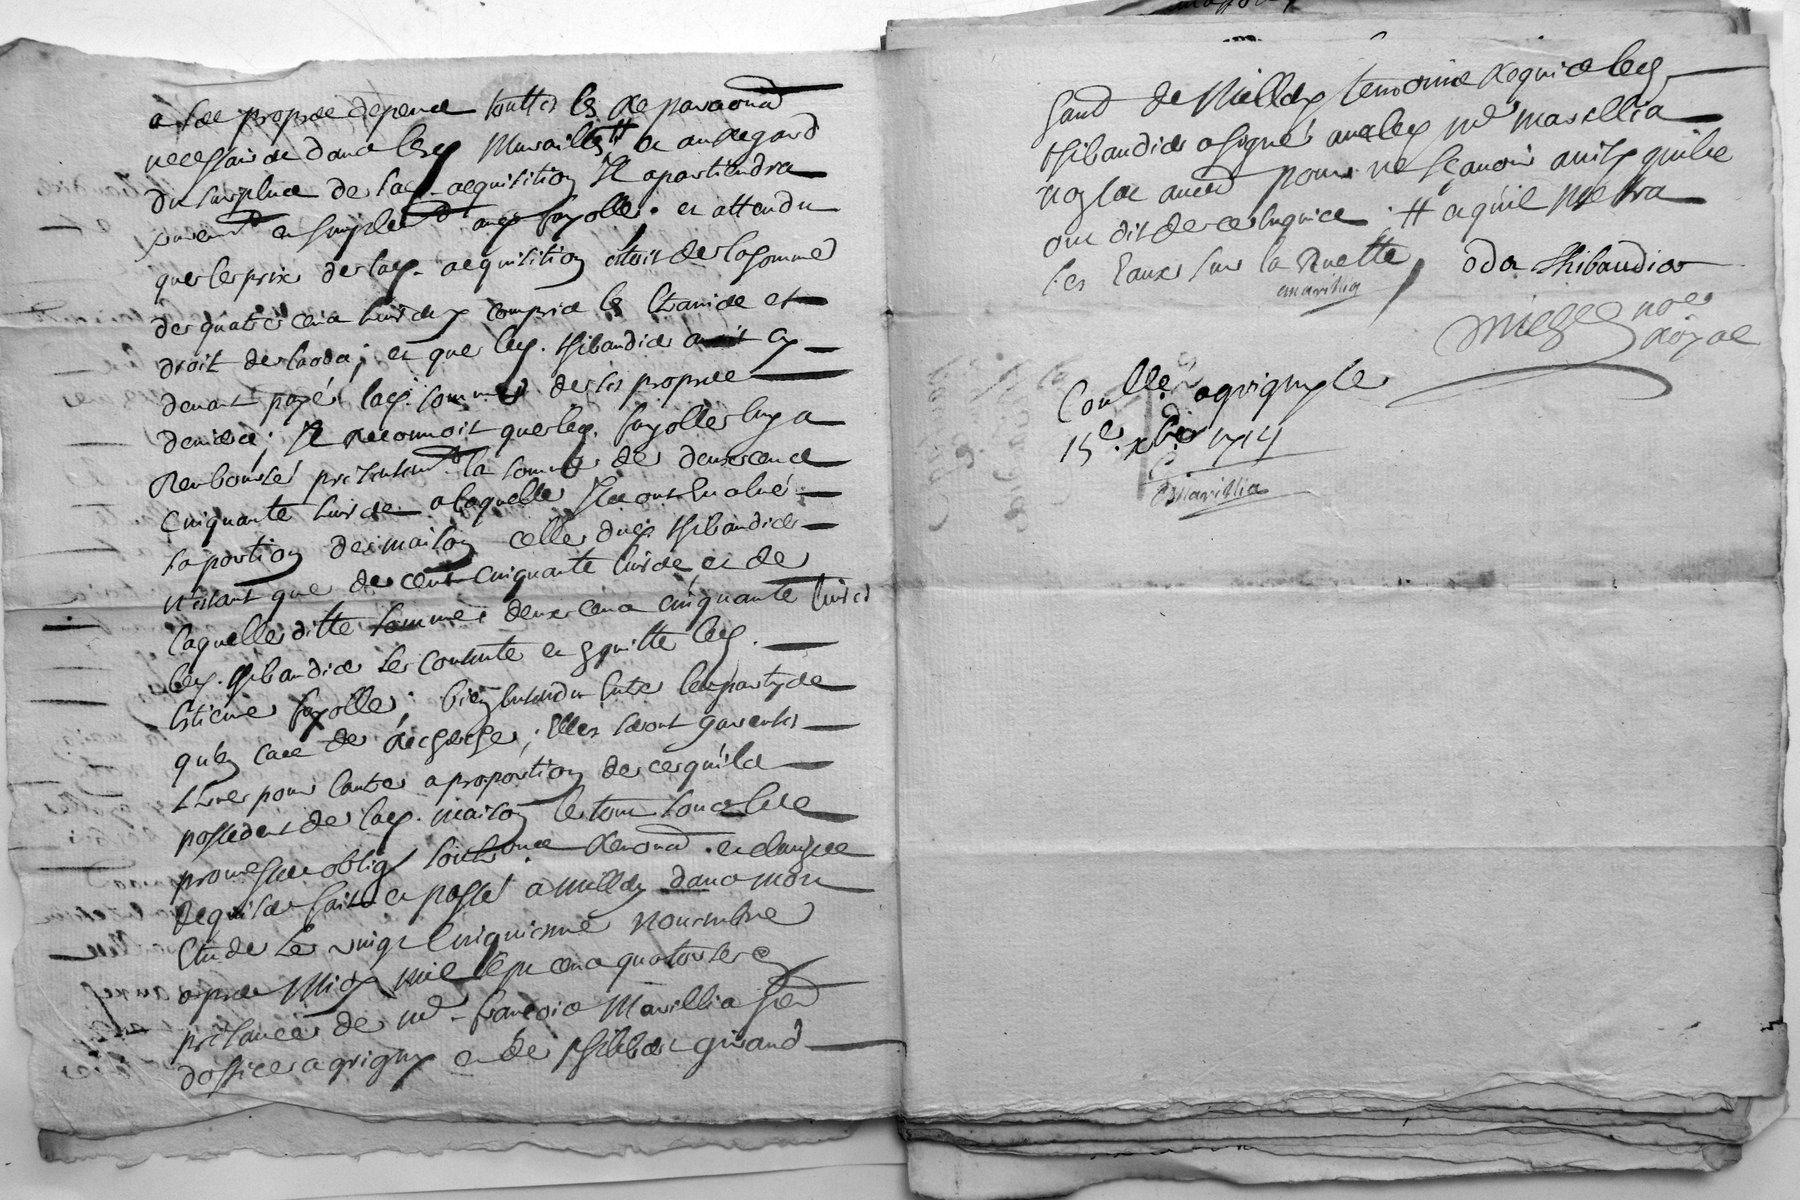 a ses propres depens touttes les reparaons
necessaires dans lesd murailles # et au regard
du surplus de lad. acquisition Il apartiendra
aud. fayolle. et attendu
que le prix de lad. acquisition estoit de la somme
de quatre cens livres y compris les Etraines et
droit de laods; et que led. thibaudier avoit cy
devant payé lad. somme de ses propres
deniers; Il reconnoit que led. fayolle luy a
Remboursé presentement la somme de deux cens
Cinquante livres a laquelle Ils ont Evalué
sa portion de maison celle dud. thibaudier
n'estant que de cent cinquante livres et de
laquelle ditte somme deux cens cinquante livres
led. thibaudier se contente et quitte led.
Estienne fayolle; bien Entendu Entre les partyes
qu'en cas de recherche; Elles seront garentes
L'une pour l'autre a proportion de ce qu'ils
possedent de lad. maison le tout sous les
promesses oblig renons. et clauses
Requises fait et passé a Millery dans mon
Etude Le vingt Cinquieme novembre
apres Midy mil sept cens quatorze en
presence de me francois Marillia
d'office a grigny et de giraud
de Millery temoins requis led.
thibaudier a signé avec led me marillia
non led pour ne sçavoir ainsy qu'il
ont dit de ce enquis # a qu'il Metra
les Eaux sur la Ruette oda thibaudier
marillia
noe
Royal
Conlle a grigny le
15e xbre 1714
Marillia